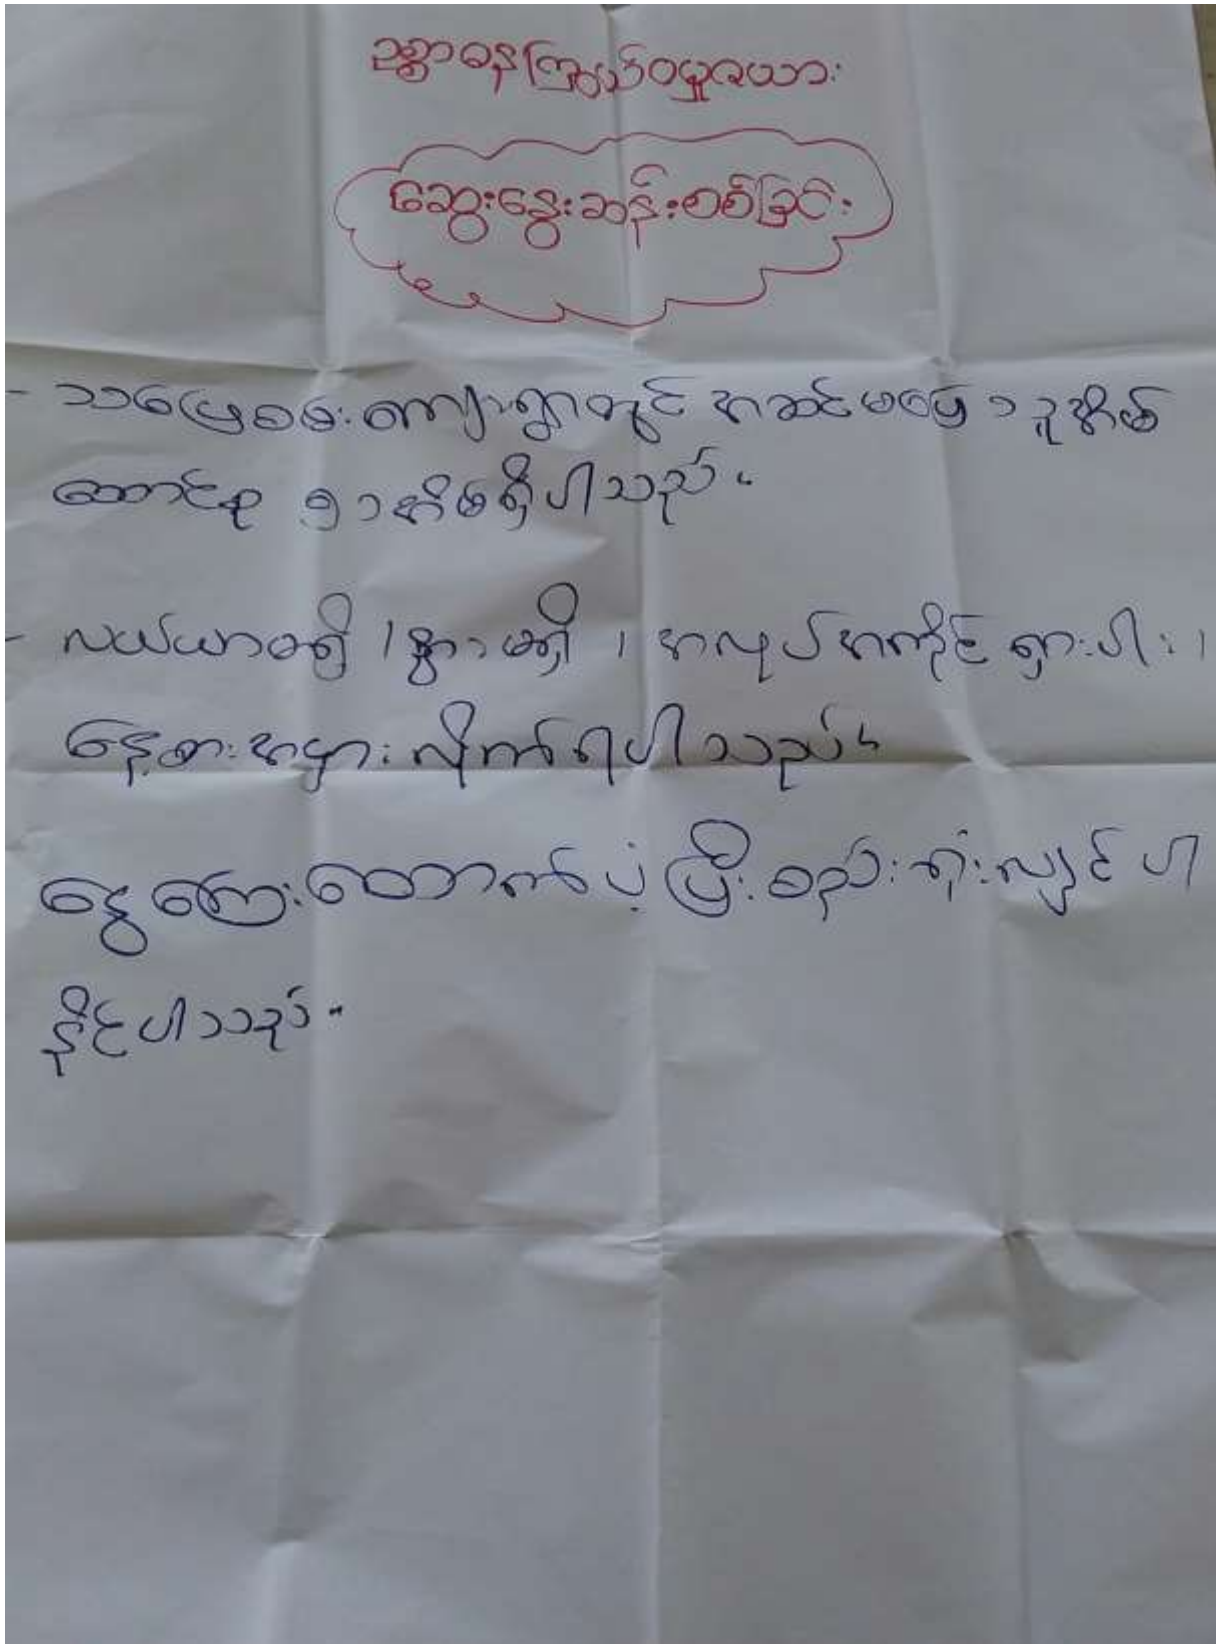 ဥစ္စာဓနကြွယ်ဝမှုဇယား
ဆွေးနွေးဆန်းစစ်ခြင်း
- သပြေစမ်းကျေးရွာတွင် အဆင်မပြေသူအိမ်
ထောင်စု ၅၁အိမ်ရှိပါသည်။
- လယ်ယာမရှိ ၊ နွားမရှိ ၊ အလုပ်အကိုင်ရှားပါး ၊
နေ့စားအငှားလိုက်ရပါသည်။
ငွေကြေးထောက်ပံ့ပြီး စည်းရုံးလျှင် ပါ
နိုင်ပါသည်။